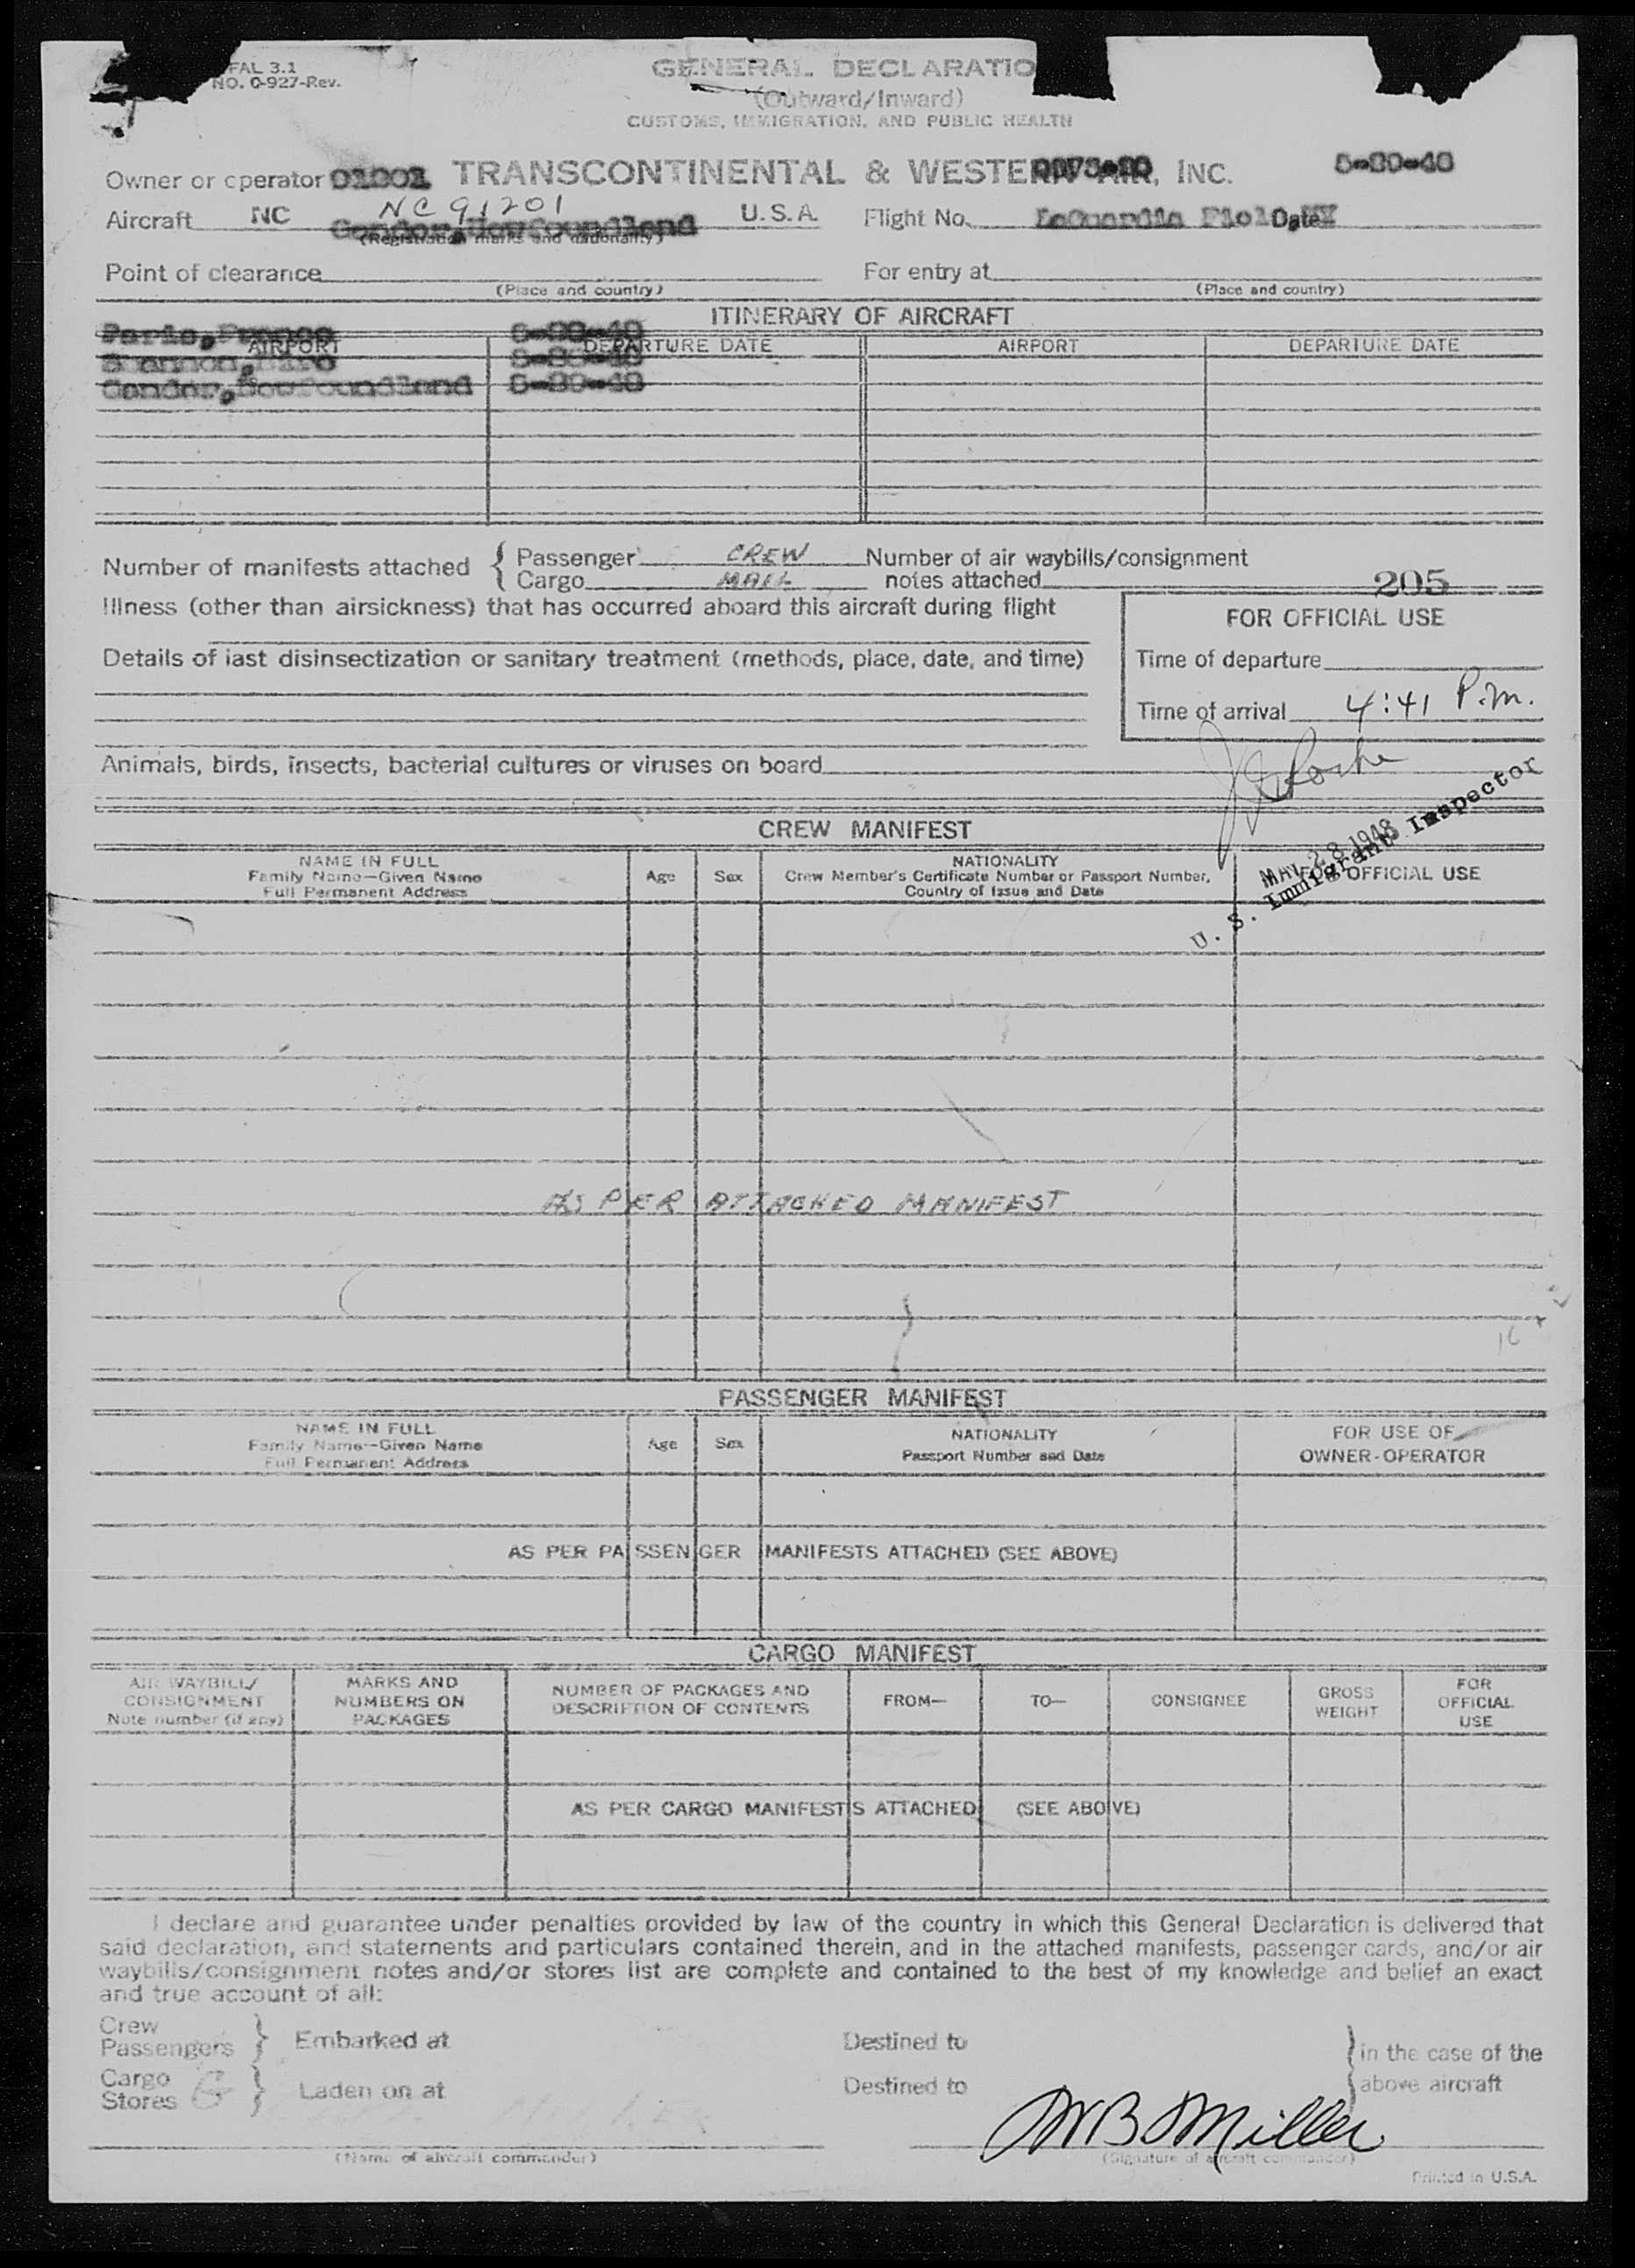 FAL 3.1
NO. C-927-Rev.
GENERAL DECLARATIO
(Outward/Inward)
CUSTOMS, IMMIGRATION, AND PUBLIC HEALTH
Owner or operator TRANSCONTINENTAL & WESTERN AIR, INC.
Aircraft NC NC 91201 U.S.A. Flight No. LaGuardia Date
Gander, Newfoundland
(Registration marks and nationality)
Point of clearance For entry at
(Place and country) (Place and country)
ITINERARY OF AIRCRAFT
AIRPORT DEPARTURE DATE AIRPORT DEPARTURE DATE
Paris, France
Shannon, Eire
Gander, Newfoundland
Number of manifests attached { Passenger CREW Number of air waybills/consignment
Cargo MAIL notes attached 205
Illness (other than airsickness) that has occurred aboard this aircraft during flight
FOR OFFICIAL USE
Details of last disinsectization or sanitary treatment (methods, place, date, and time)
Time of departure
Time of arrival 4:41 P.m.
Animals, birds, insects, bacterial cultures or viruses on board
U. S. Immigrant Inspector
MAY 28 1948
CREW MANIFEST
NAME IN FULL
Family Name—Given Name
Full Permanent Address
Age Sex
NATIONALITY
Crew Member's Certificate Number or Passport Number,
Country of Issue and Date
FOR OFFICIAL USE
AS PER ATTACHED MANIFEST
PASSENGER MANIFEST
NAME IN FULL
Family Name—Given Name
Full Permanent Address
Age Sex
NATIONALITY
Passport Number and Date
FOR USE OF
OWNER-OPERATOR
AS PER PASSENGER MANIFESTS ATTACHED (SEE ABOVE)
CARGO MANIFEST
AIR WAYBILL/
CONSIGNMENT
Note number (if any)
MARKS AND
NUMBERS ON
PACKAGES
NUMBER OF PACKAGES AND
DESCRIPTION OF CONTENTS
FROM—
TO—
CONSIGNEE
GROSS
WEIGHT
FOR
OFFICIAL
USE
AS PER CARGO MANIFESTS ATTACHED (SEE ABOVE)
I declare and guarantee under penalties provided by law of the country in which this General Declaration is delivered that
said declaration, and statements and particulars contained therein, and in the attached manifests, passenger cards, and/or air
waybills/consignment notes and/or stores list are complete and contained to the best of my knowledge and belief an exact
and true account of all:
Crew
Passengers } Embarked at Destined to } in the case of the
Cargo
Stores } Laden on at Destined to } above aircraft
W B Miller
(Name of aircraft commander) (Signature of aircraft commander)
Printed in U.S.A.